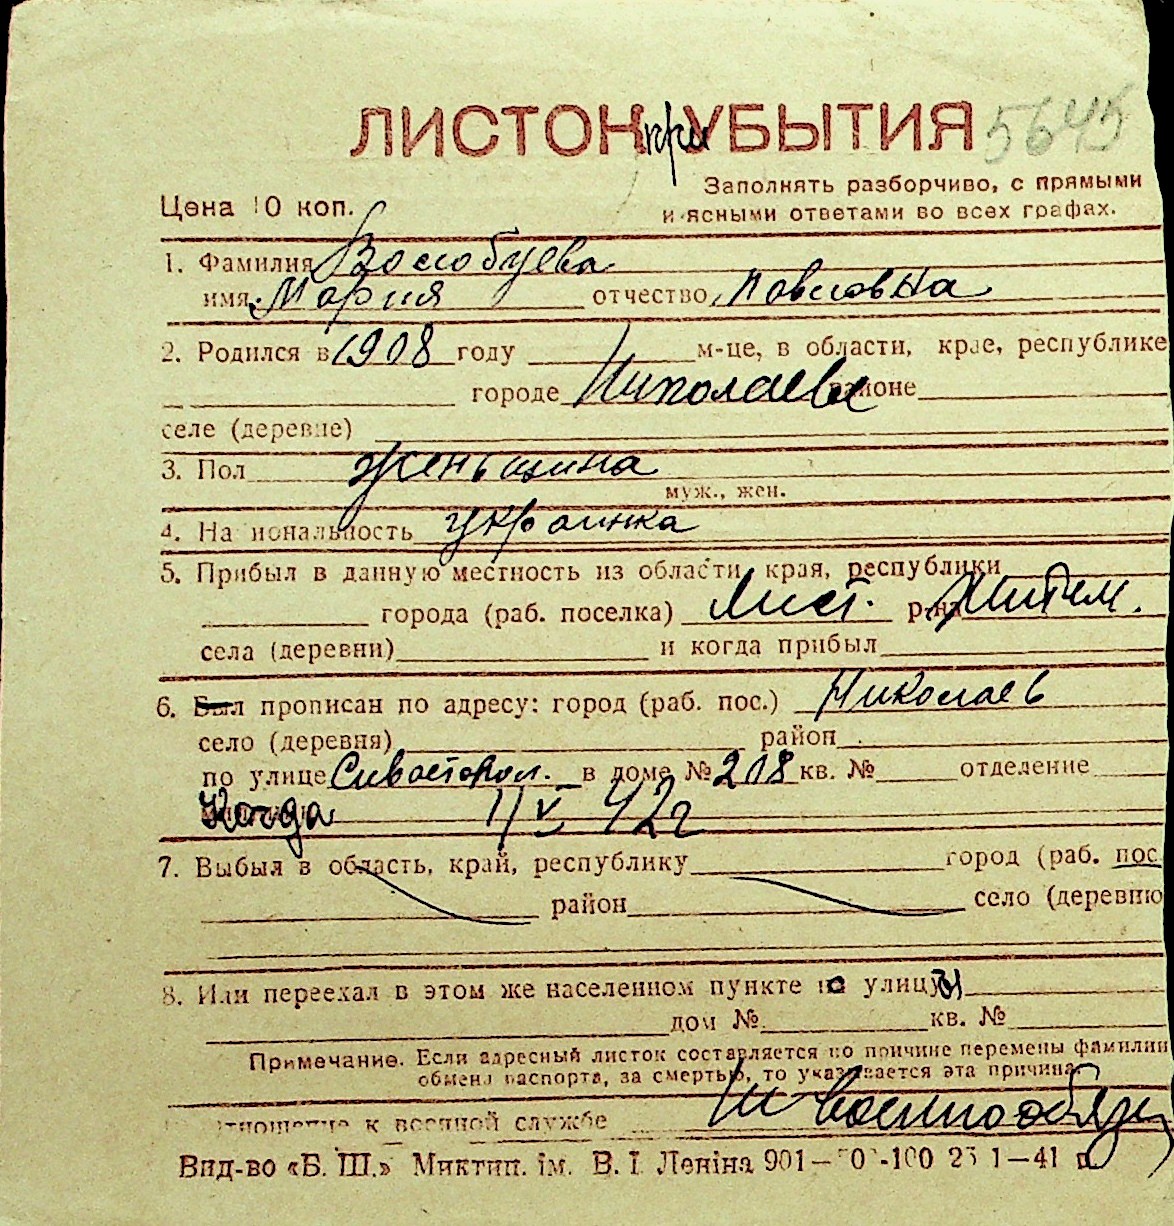 ЛИСТОК при УБЫТИЯ 5645
Заполнять разборчиво, с прямыми
Цена 10 коп. и ясными ответами во всех графах.
1. Фамилия Волобуева
имя Мария отчество Павловна
2. Родился в 1908 году м-це, в области, крае, республике
городе Николаеве районе
селе (деревне)
3. Пол женьщина
муж., жен.
4. Национальность украинка
5. Прибыл в данную местность из области, края, республики
города (раб. поселка) Лист. р-на
села (деревни) и когда прибыл
6. Был прописан по адресу: город (раб. пос.) Николаев
село (деревня) район
по улице Сивастопол. в доме № 218 кв. № отделение
Когда 1/V 42 г
7. Выбыл в область, край, республику город (раб. пос
район село (деревню
8. Или переехал в этом же населенном пункте с улицы
дом № кв. №
Примечание. Если адресный листок составляется по причине перемены фамилии
обмена паспорта, за смертью, то указывается эта причина.
отношение к военной службе
Вид-во «Б. Ш.» Миктип. ім. В. І. Леніна 901—